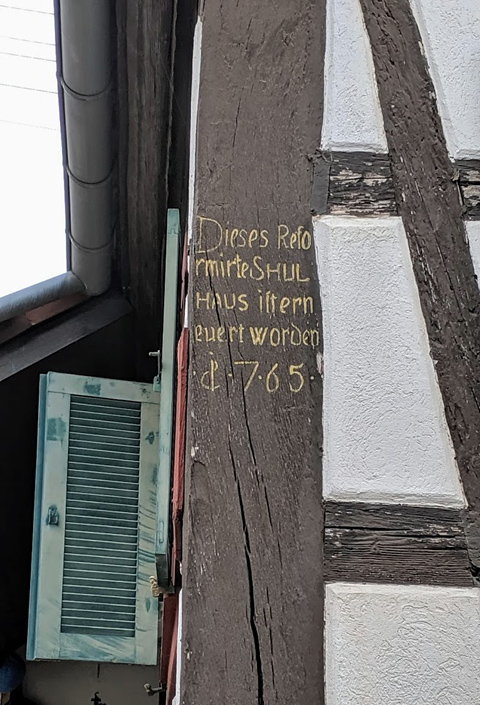 Dieses Refo
rmirte SHUL
HAUS ist ern
euert worden
·1·7·6·5·